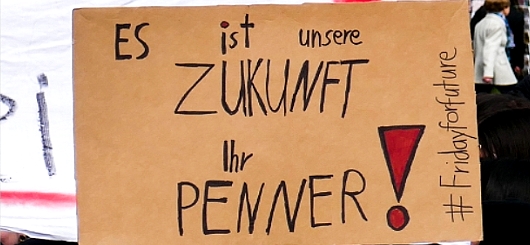 ES ist unsere
ZUKUNFT
Ihr
PENNER!
#Fridayforfuture